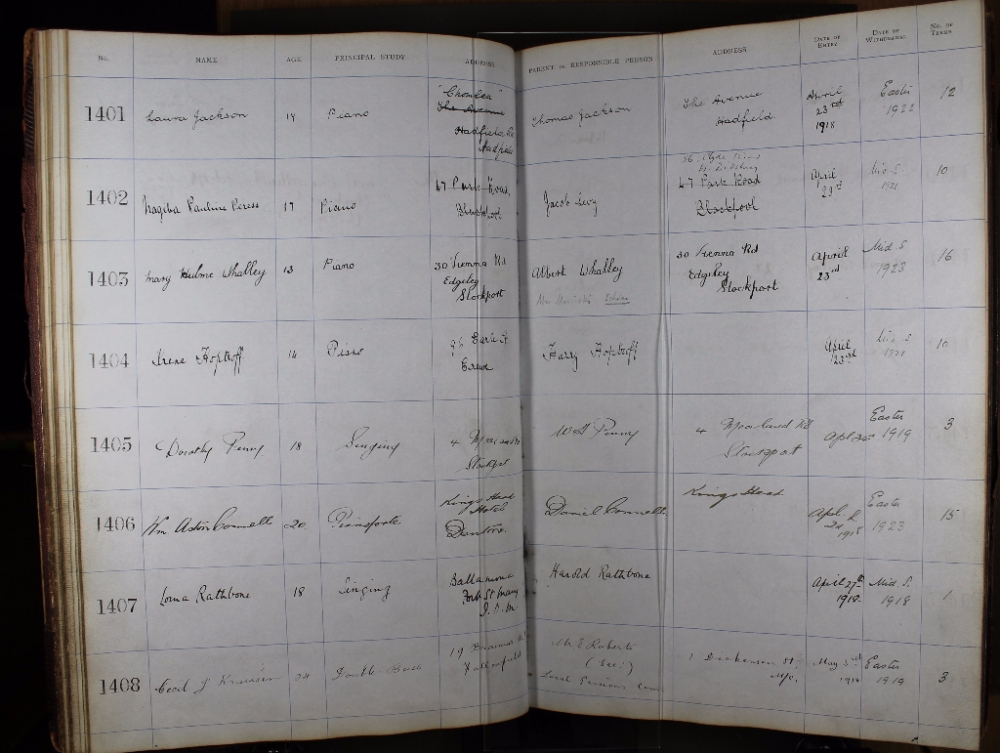 No. NAME AGE PRINCIPAL STUDY ADDRESS PARENT or RESPONSIBLE PERSON ADDRESS DATE OF ENTRY DATE OF WITHDRAWAL No. OF TERMS
1401 Laura Jackson 17 Piano The Avenue Hadfield Thomas Jackson The Avenue Hadfield April 23rd 1918 Easter 1922 12
1402 Pauline Peress 17 Piano 47 Park Road, Blackpool Jacob Levy 47 Park Road Blackpool April 23rd Mid S 1921 10
1403 Mary Hulme Whalley 13 Piano 30 Vienna Rd Edgeley Stockport Albert Whalley 30 Vienna Rd Edgeley Stockport April 23rd Mid S 1923 16
1404 Irene Hoptroff 14 Piano Harry Hoptroff April 23rd Mid S 1921 10
1405 Dorothy Penny 18 Singing 4 Stockport Penny 4 Moorland Rd Stockport Apl Easter 1919 3
1406 Wm Aston Connolly 20 Pianoforte Kings Head Hotel Denton. Daniel Connolly Kings Head Apl 1918 Easter 1923 15
1407 Lorna Rathbone 18 Singing Port St Mary I.O.M. Harold Rathbone April 27th 1918. Mid S. 1918 1
1408 Cecil Double Bass 19 Roberts (Sec:) 1 Dickenson St, M/c. May Easter 1919 3